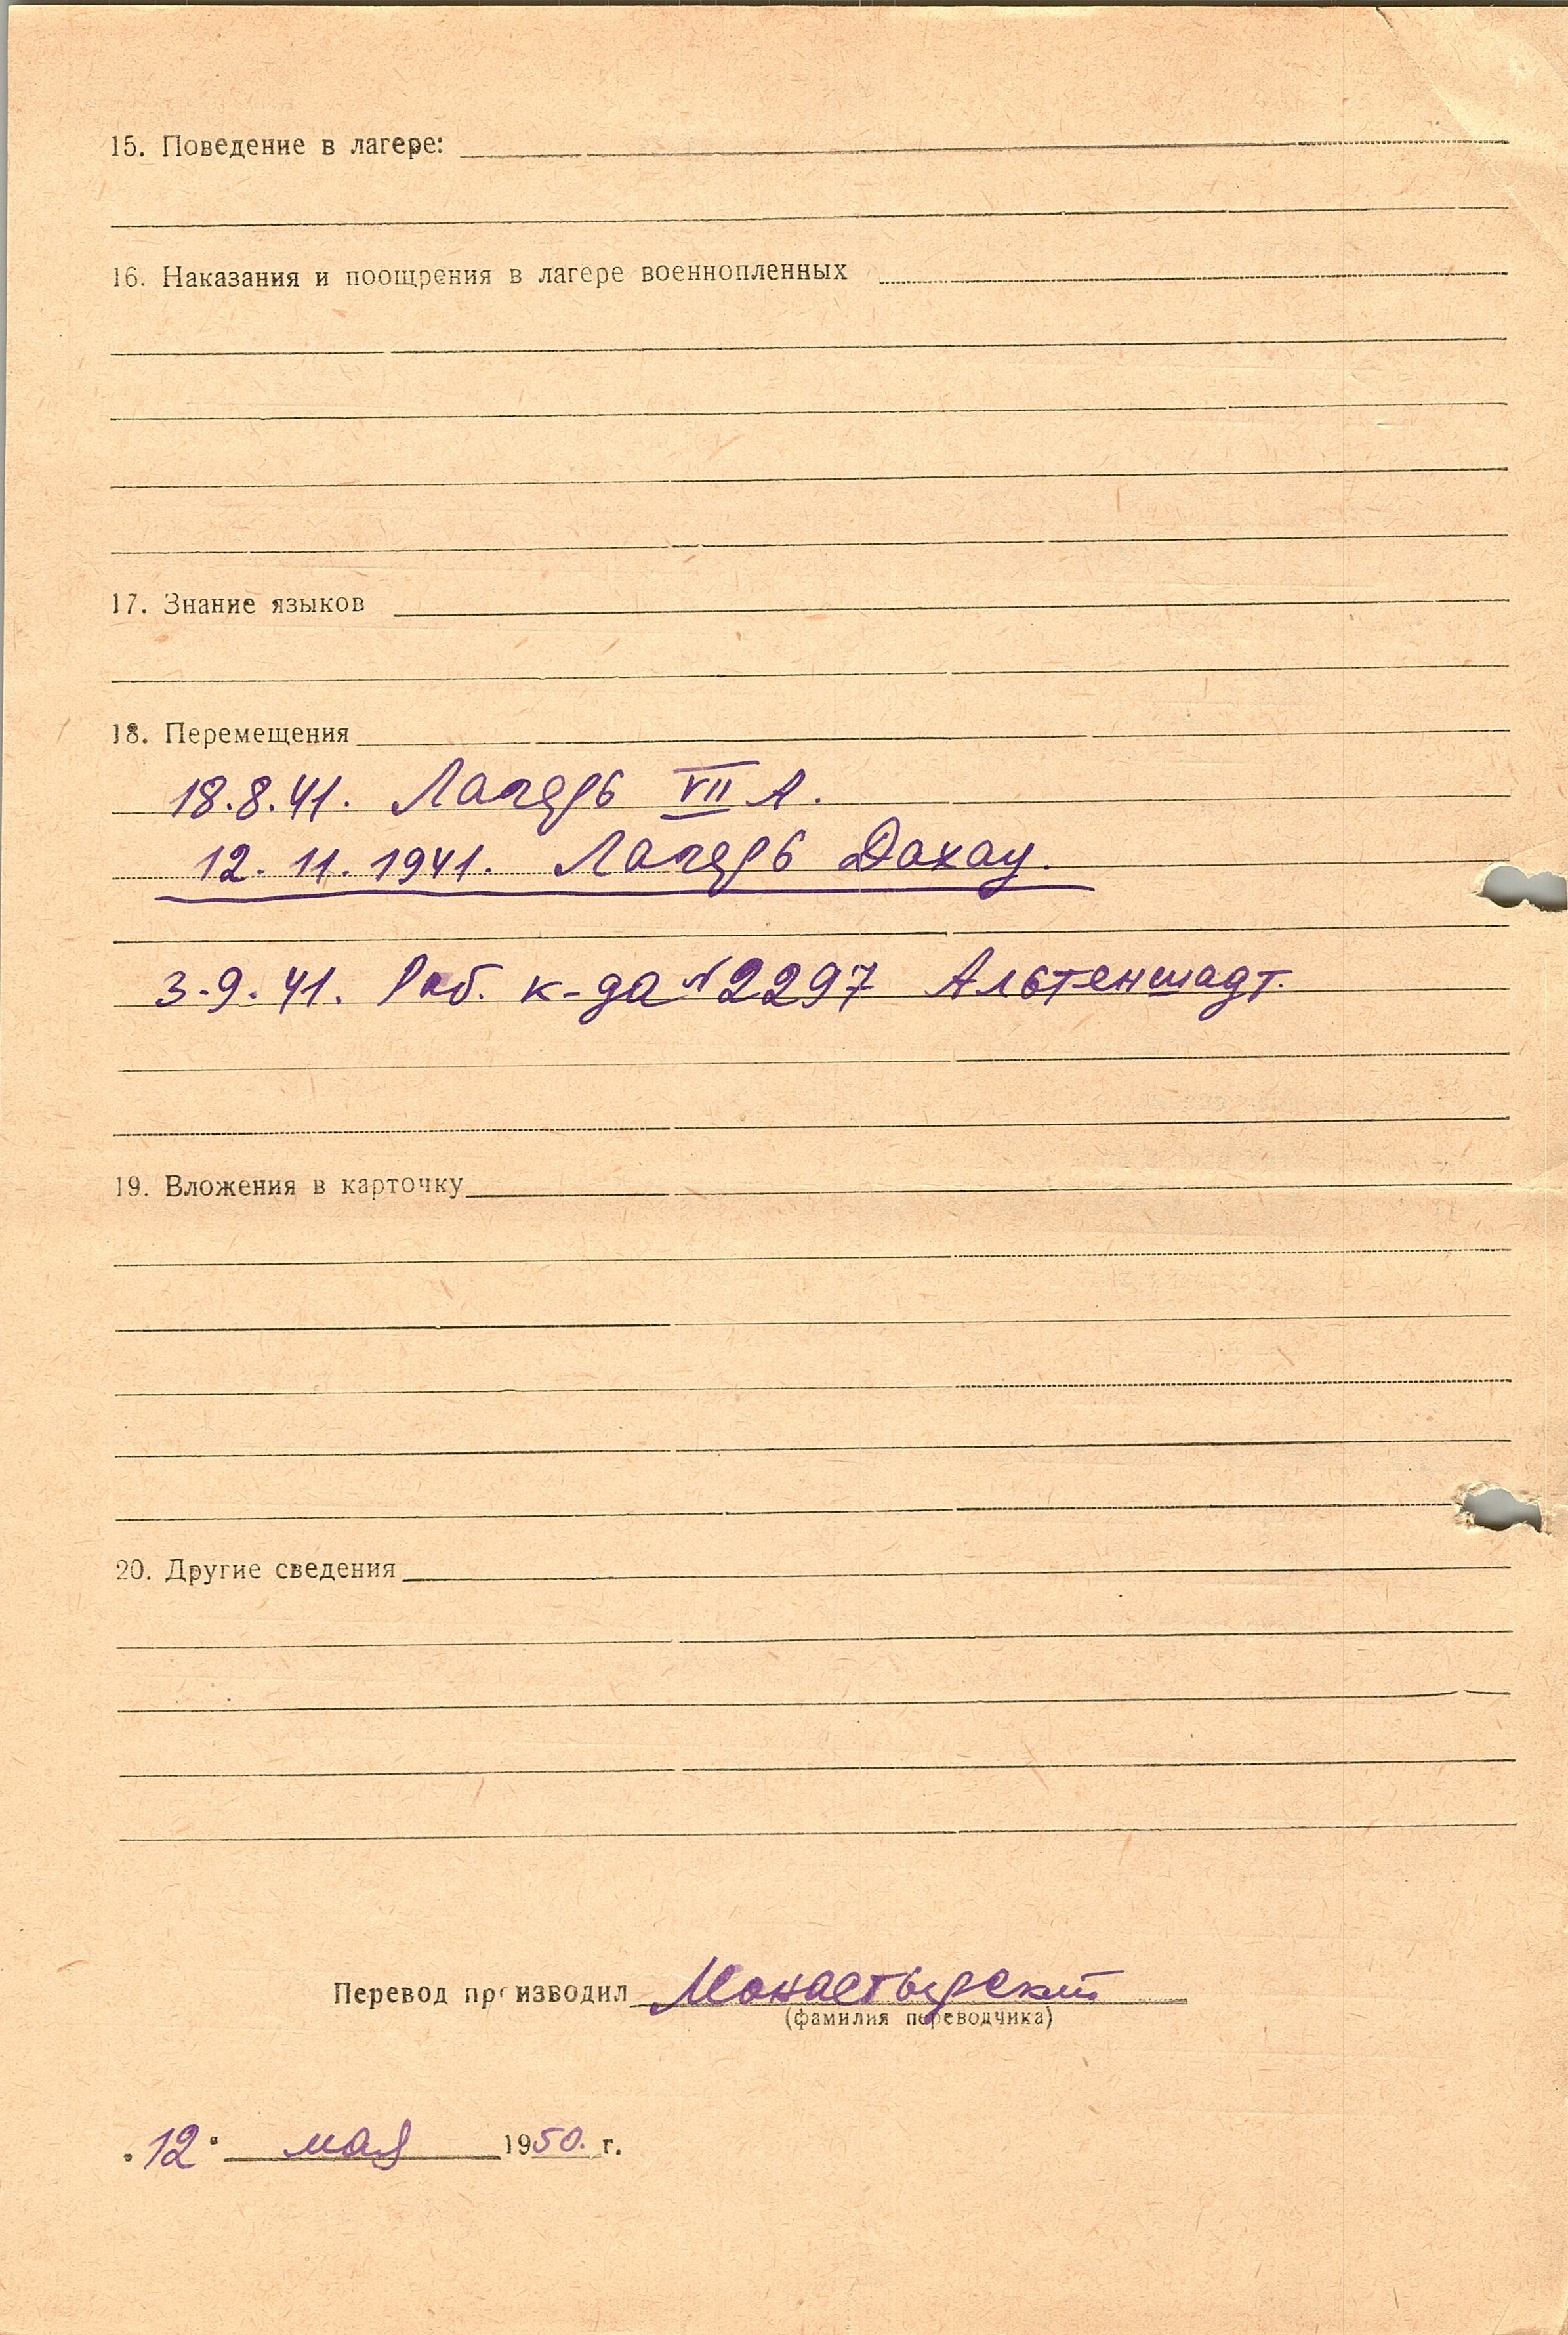 15. Поведение в лагере:
16. Наказания и поощрения в лагере военнопленных
17. Знание языков
18. Перемещения
18.8.41. Лагерь VII А.
12.11.1941. Лагерь Дахау.
3.9.41. Раб. к-да № 2297 Альтеншадт.
19. Вложения в карточку
20. Другие сведения
Перевод производил Монастырский
(фамилия переводчика)
"12" мая 1950. г.